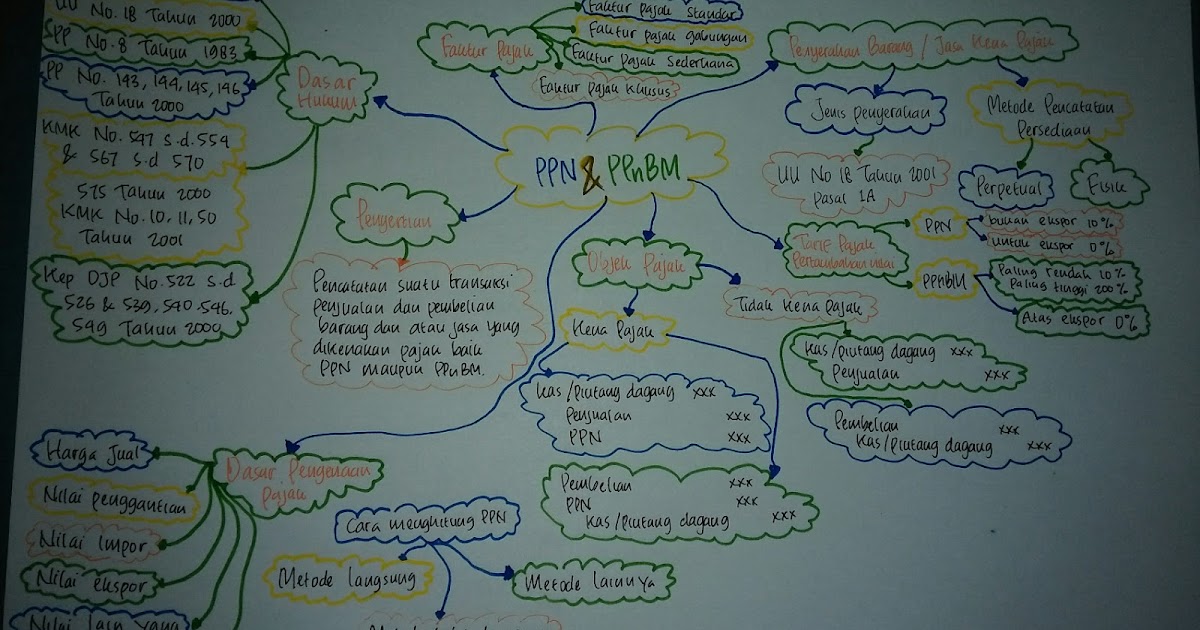 UU No. 18 Tahun 2000
SPP No. 8 Tahun 1983
PP No. 143, 144, 145, 146
Tahun 2000
KMK No. 547 s.d. 554
& 567 s.d 570
575 Tahun 2000
KMK No. 10, 11, 50
Tahun 2001
Kep DJP No. 522 s.d
526 & 539, 540. 546.
549 Tahun 2000
Dasar
Hukum
Faktur Pajak
Faktur pajak Standar
Faktur pajak gabungan
Faktur pajak Sederhana
Faktur pajak Khusus
Penyerahan Barang / Jasa Kena Pajak
Jenis penyerahan
UU No 18 Tahun 2001
Pasal 1A
Metode Pencatatan
Persediaan
Perpetual
Fisik
PPN & PPnBM
Pengertian
Pencatatan suatu transaksi
penjualan dan pembelian
barang dan atau jasa yang
dikenakan pajak baik
PPN maupun PPnBM.
Objek Pajak
Kena Pajak
Tidak Kena pajak
Tarif Pajak
Pertambahan nilai
PPN
bukan ekspor 10%
untuk ekspor 0%
PPNBM
Paling rendah 10%
Paling tinggi 200%
Atas ekspor 0%
Kas/piutang dagang xxx
Penjualan xxx
Pembelian xxx
Kas/piutang dagang xxx
Kas/piutang dagang xxx
Penjualan xxx
PPN xxx
Pembelian xxx
PPN xxx
Kas/piutang dagang xxx
Dasar Pengenaan
Pajak
Harga Jual
Nilai penggantian
Nilai Impor
Nilai ekspor
Nilai lain yang
Cara menghitung PPN
Metode langsung
Metode lainnya